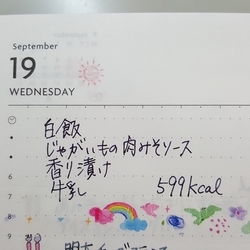 September
19
WEDNESDAY
白飯
じゃがいもの肉みそソース
香り漬け
牛乳 599kcal
7
8
9